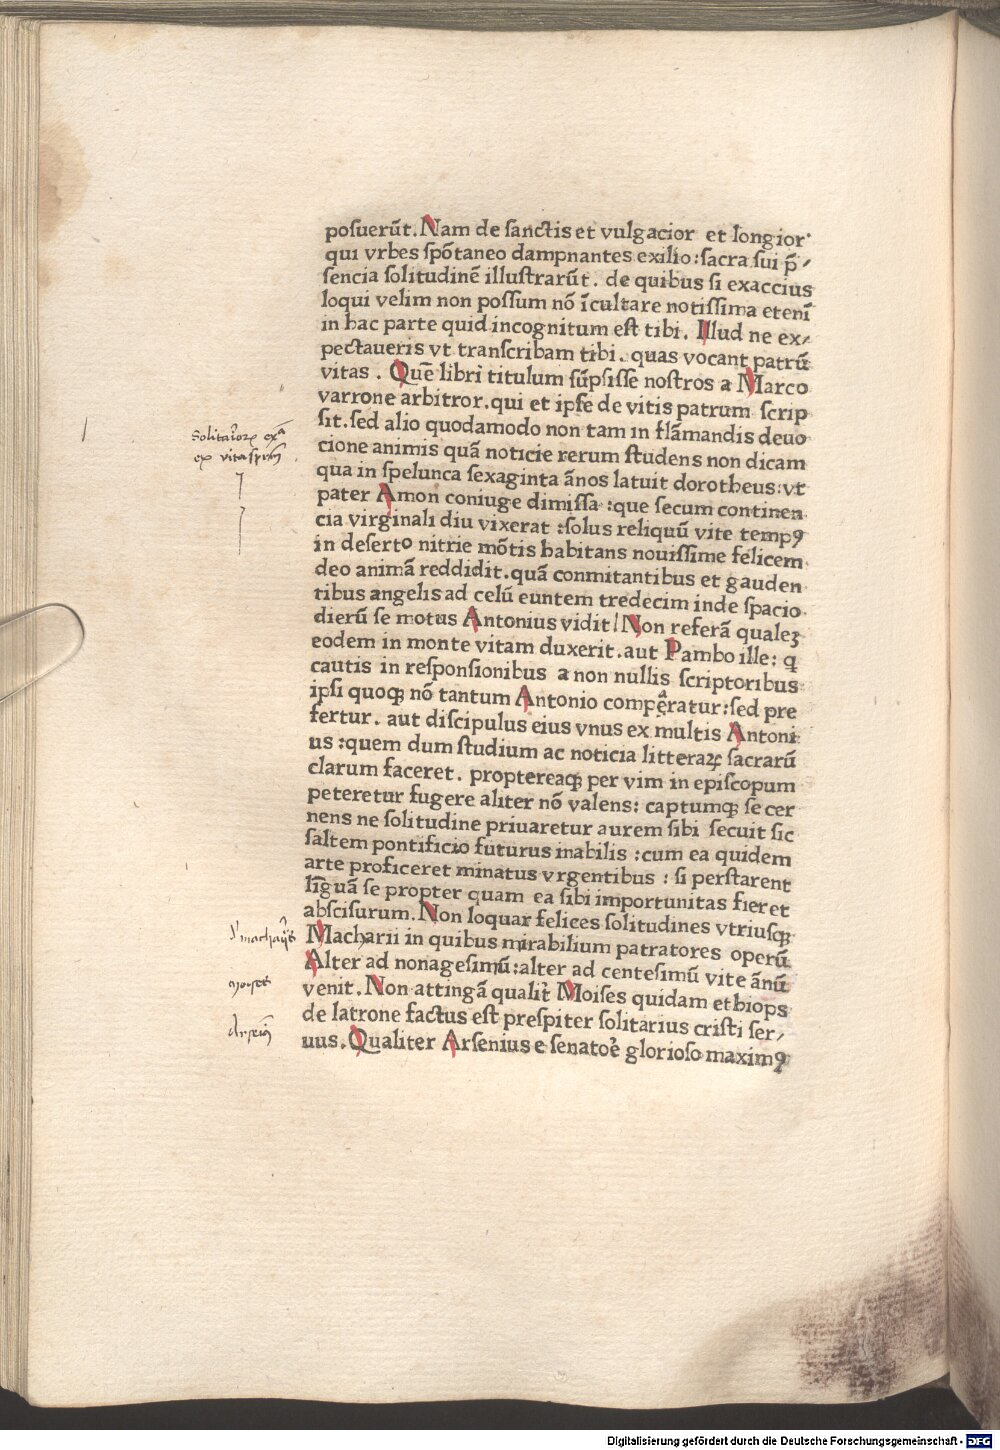 posuerūt. Nam de sanctis et vulgacior et longior·
qui vrbes spōtaneo dampnantes exilio: sacra sui p̄⸗
sencia solitudinē illustrarūt. de quibus si exaccius
loqui velim non possum nō īcultare notissima etenī
in hac parte quid incognitum est tibi. Illud ne ex⸗
pectaueris vt transcribam tibi. quas vocant patrū
vitas. Quē libri titulum sūpsisse nostros a Marco
varrone arbitror. qui et ipse de vitis patrum scrip
sit. sed alio quodamodo non tam in flāmandis deuo
cione animis quā noticie rerum studens non dicam
qua in spelunca sexaginta ānos latuit dorotheus: vt
pater Amon coniuge dimissa: que secum continen
cia virginali diu vixerat: solus reliquū vite tempꝯ
in deserto nitrie mōtis habitans nouissime felicem
deo animā reddidit. quā conmitantibus et gauden
tibus angelis ad celū euntem tredecim inde spacio
dierū se motus Antonius vidit! Non referā qualeʒ
eodem in monte vitam duxerit. aut Pambo ille: q
cautis in responsionibus a non nullis scriptoribus
ipsi quoqꝫ nō tantum Antonio comperatur: sed pre
fertur. aut discipulus eius vnus ex multis Antoni
us: quem dum studium ac noticia litteraꝝ sacrarū
clarum faceret. proptereaqꝫ per vim in episcopum
peteretur fugere aliter nō valens: captumqꝫ se cer
nens ne solitudine priuaretur aurem sibi secuit sic
saltem pontificio futurus inabilis: cum ea quidem
arte proficeret minatus vrgentibus: si perstarent
līguā se propter quam ea sibi importunitas fieret
abscisurum. Non loquar felices solitudines vtriusqꝫ
Macharii in quibus mirabilium patratores operū
Alter ad nonagesimū: alter ad centesimū vite ānū
venit. Non attingā qualiť Moises quidam ethiops
de latrone factus est prespiter solitarius cristi ser⸗
uus. Qualiter Arsenius e senatoē glorioso maximꝯ
Solitarioꝝ exᵃ
ex vitaspatrū
Moises
Arseniꝯ
Digitalisierung gefördert durch die Deutsche Forschungsgemeinschaft - DFG